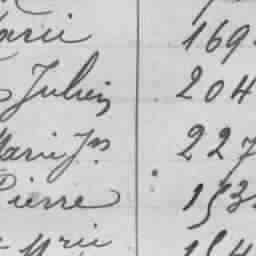 Marie 169
Julien 204
Marie Jn 227
Pierre 153
Mrie 154